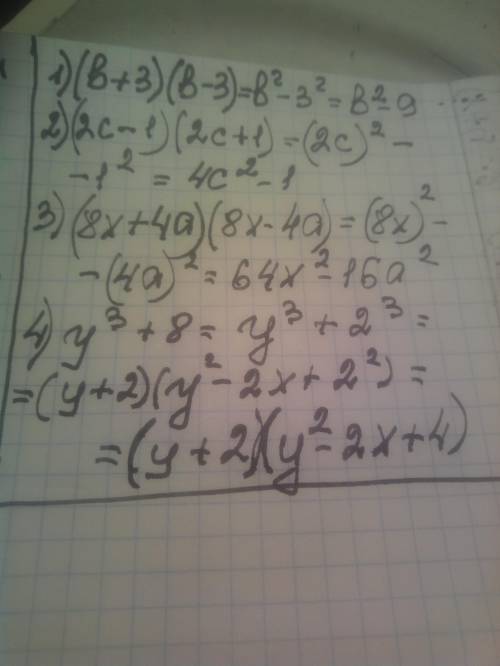 1) (в+3)(в-3)=в²-3²=в²-9
2) (2c-1)(2c+1)=(2c)²-
-1² = 4c²-1
3) (8x+4a)(8x-4a)=(8x)²-
-(4a)² = 64x²-16a²
4) y³+8= y³+2³=
=(y+2)(y²-2x+2²)=
=(y+2)(y²-2x+4)